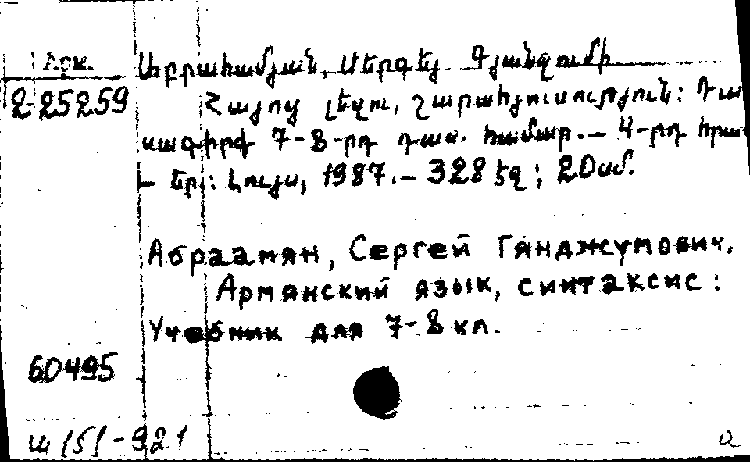 Արք.
Աբրահամյան, Սերգեյ Գյանջումի
2-25259
Հայոց լեզու, շարահյուսություն: Դա
սագիրք 7-8-րդ դաս. համար.— 4-րդ հրատ
— Եր.: Լույս, 1987.— 328 էջ; 20 սմ.
Абраамян, Сергей Гянджумович.
Армянский язык, синтаксис:
Учебник для 7-8 кл.
60495
ա (5) - 921
a